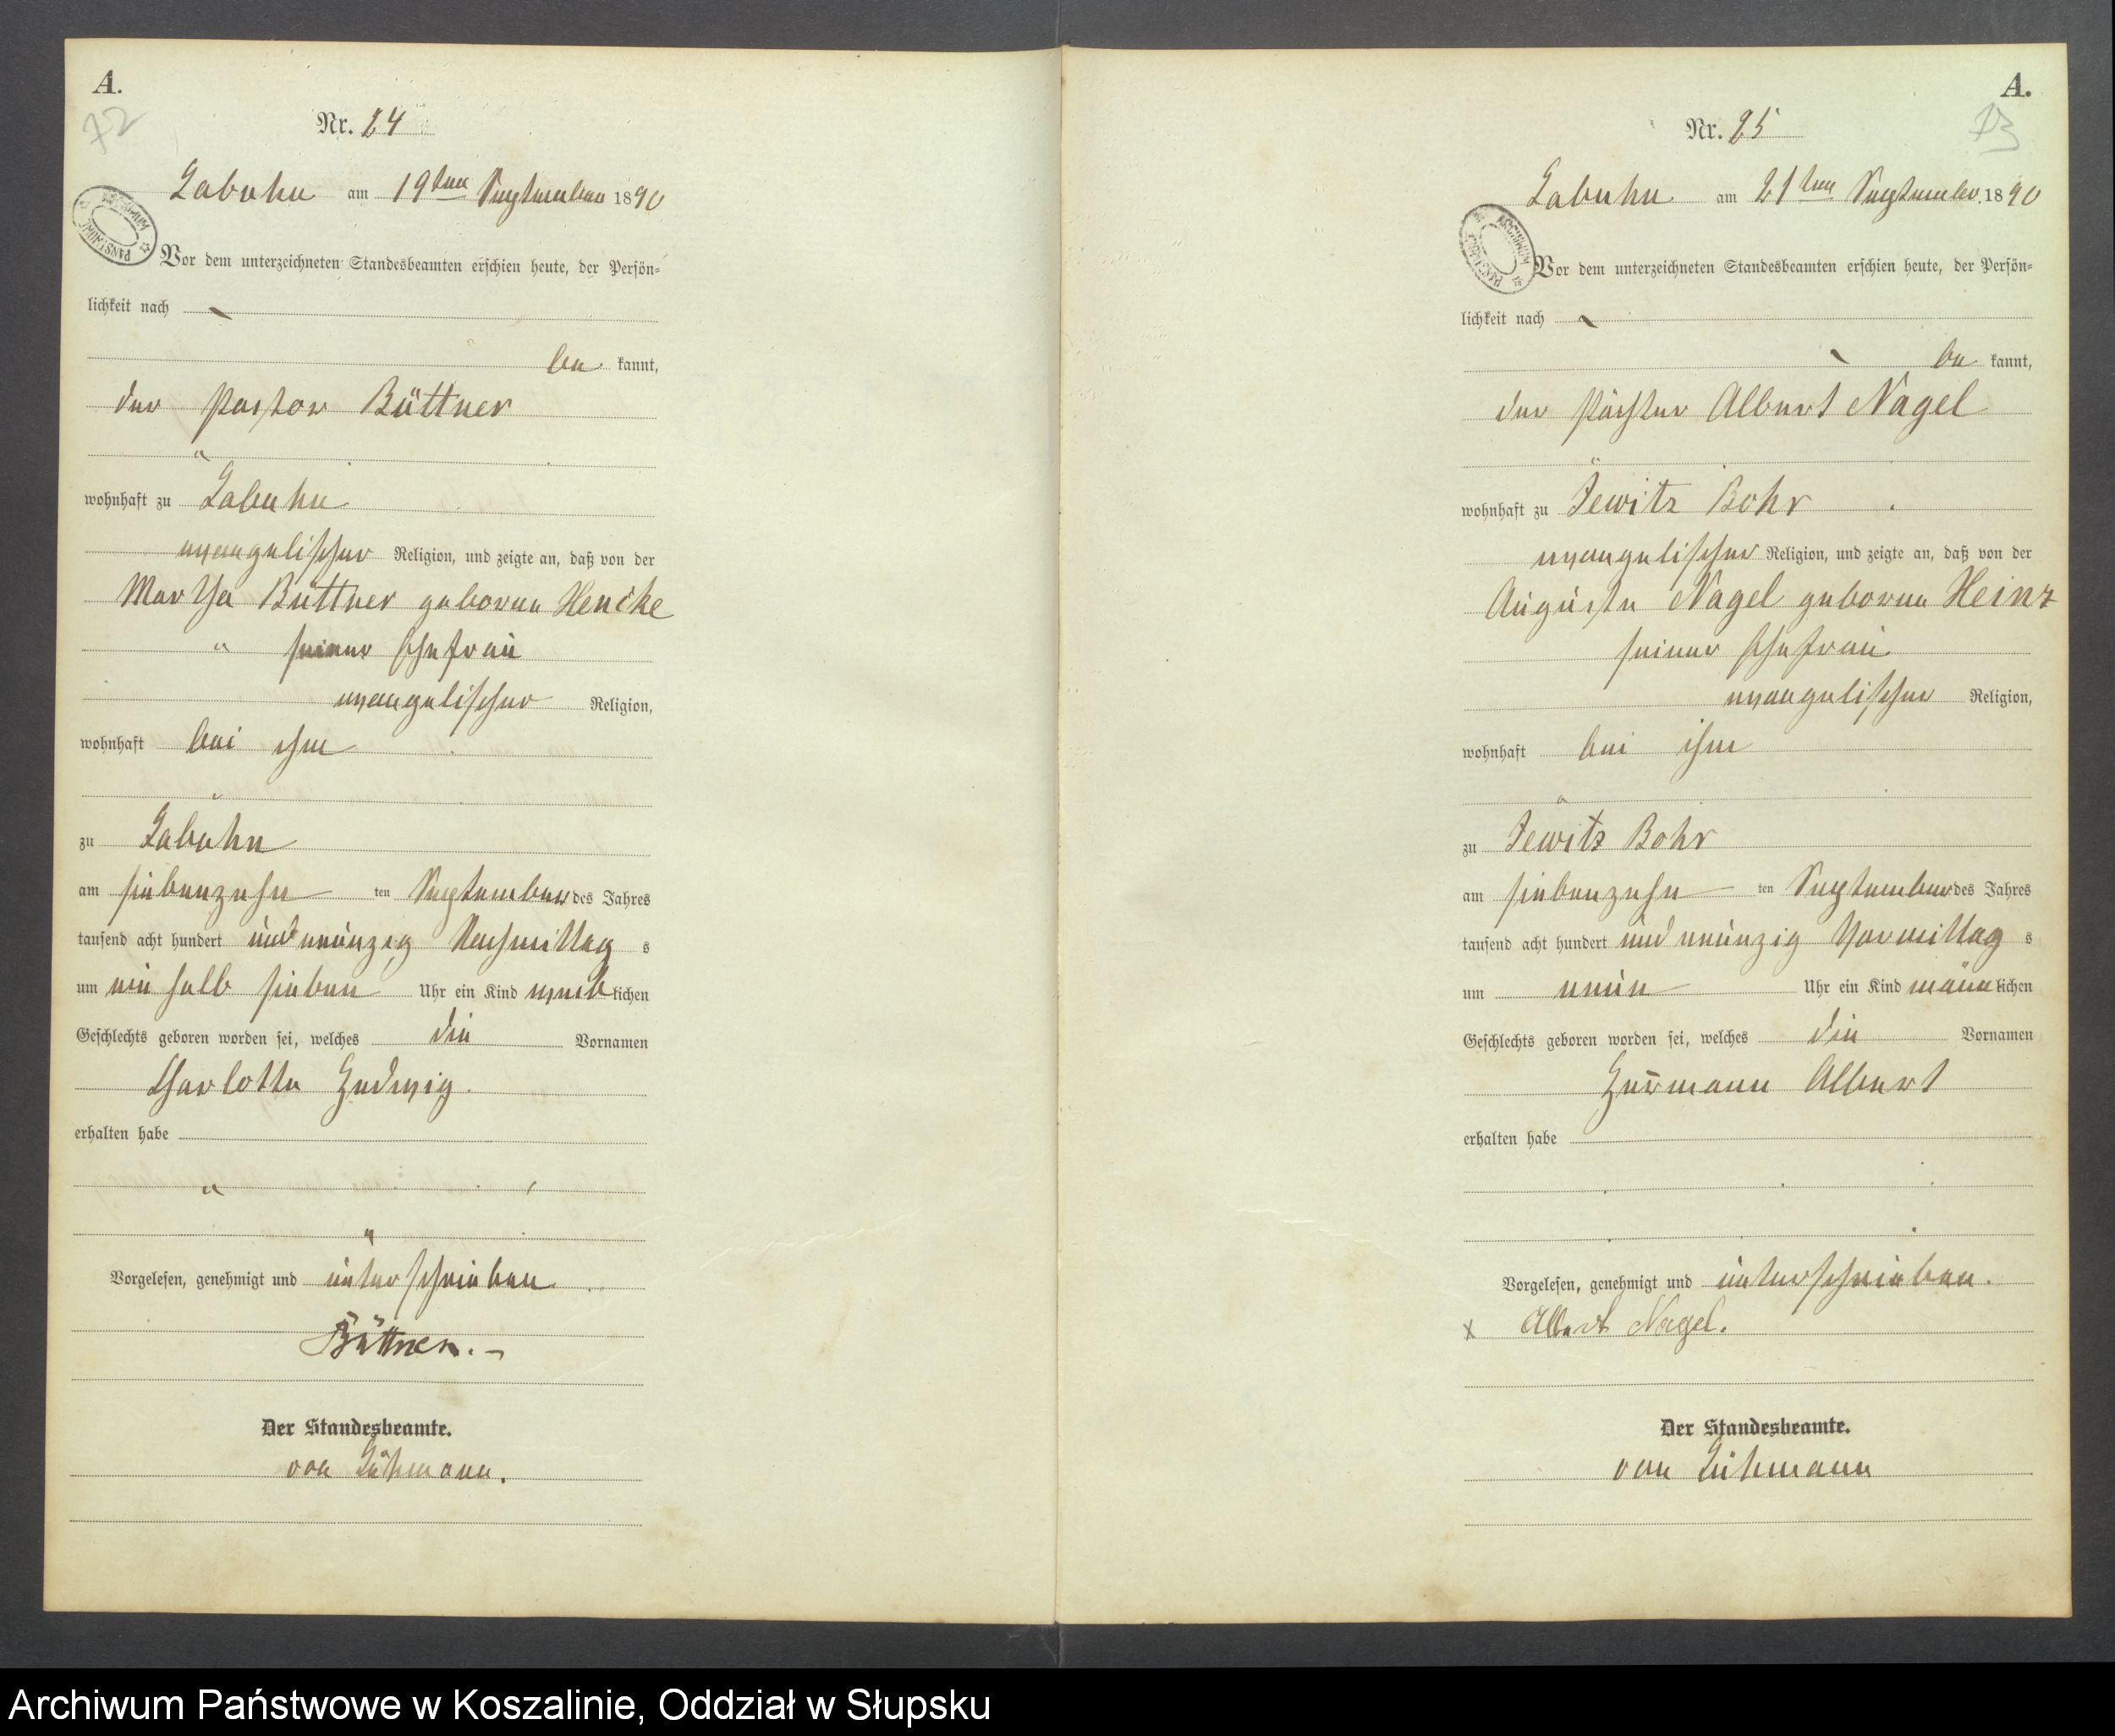 A.
72
Nr. 24
Labuhn am 19ten September 1890
Vor dem unterzeichneten Standesbeamten erschien heute, der Persön=
lichkeit nach
be kannt,
der Pastor Büttner
wohnhaft zu Labuhn
evangelischer Religion, und zeigte an, daß von der
Martha Büttner geborene Hencke
seiner Ehefrau
evangelischer Religion,
wohnhaft bei ihm
zu Labuhn
am siebenzehn ten September des Jahres
tausend acht hundert und neunzig Nachmittag s
um ein halb sieben Uhr ein Kind weib lichen
Geschlechts geboren worden sei, welches die Vornamen
Charlotte Hedwig.
erhalten habe
Vorgelesen, genehmigt und unterschrieben
Büttner.
Der Standesbeamte.
von
A.
73
Nr. 25
Labuhn am 21ten September 1890
Vor dem unterzeichneten Standesbeamten erschien heute, der Persön=
lichkeit nach
be kannt,
der Albert Nagel
wohnhaft zu Jewitz Bohr
evangelischer Religion, und zeigte an, daß von der
Auguste Nagel geborene Heinz
seiner Ehefrau
evangelischer Religion,
wohnhaft bei ihm
zu Jewitz Bohr
am siebenzehn ten September des Jahres
tausend acht hundert und neunzig Vormittag s
um neun Uhr ein Kind männ lichen
Geschlechts geboren worden sei, welches die Vornamen
Hermann Albert
erhalten habe
Vorgelesen, genehmigt und unterschrieben.
x Albert Nagel.
Der Standesbeamte.
von
Archiwum Państwowe w Koszalinie, Oddział w Słupsku